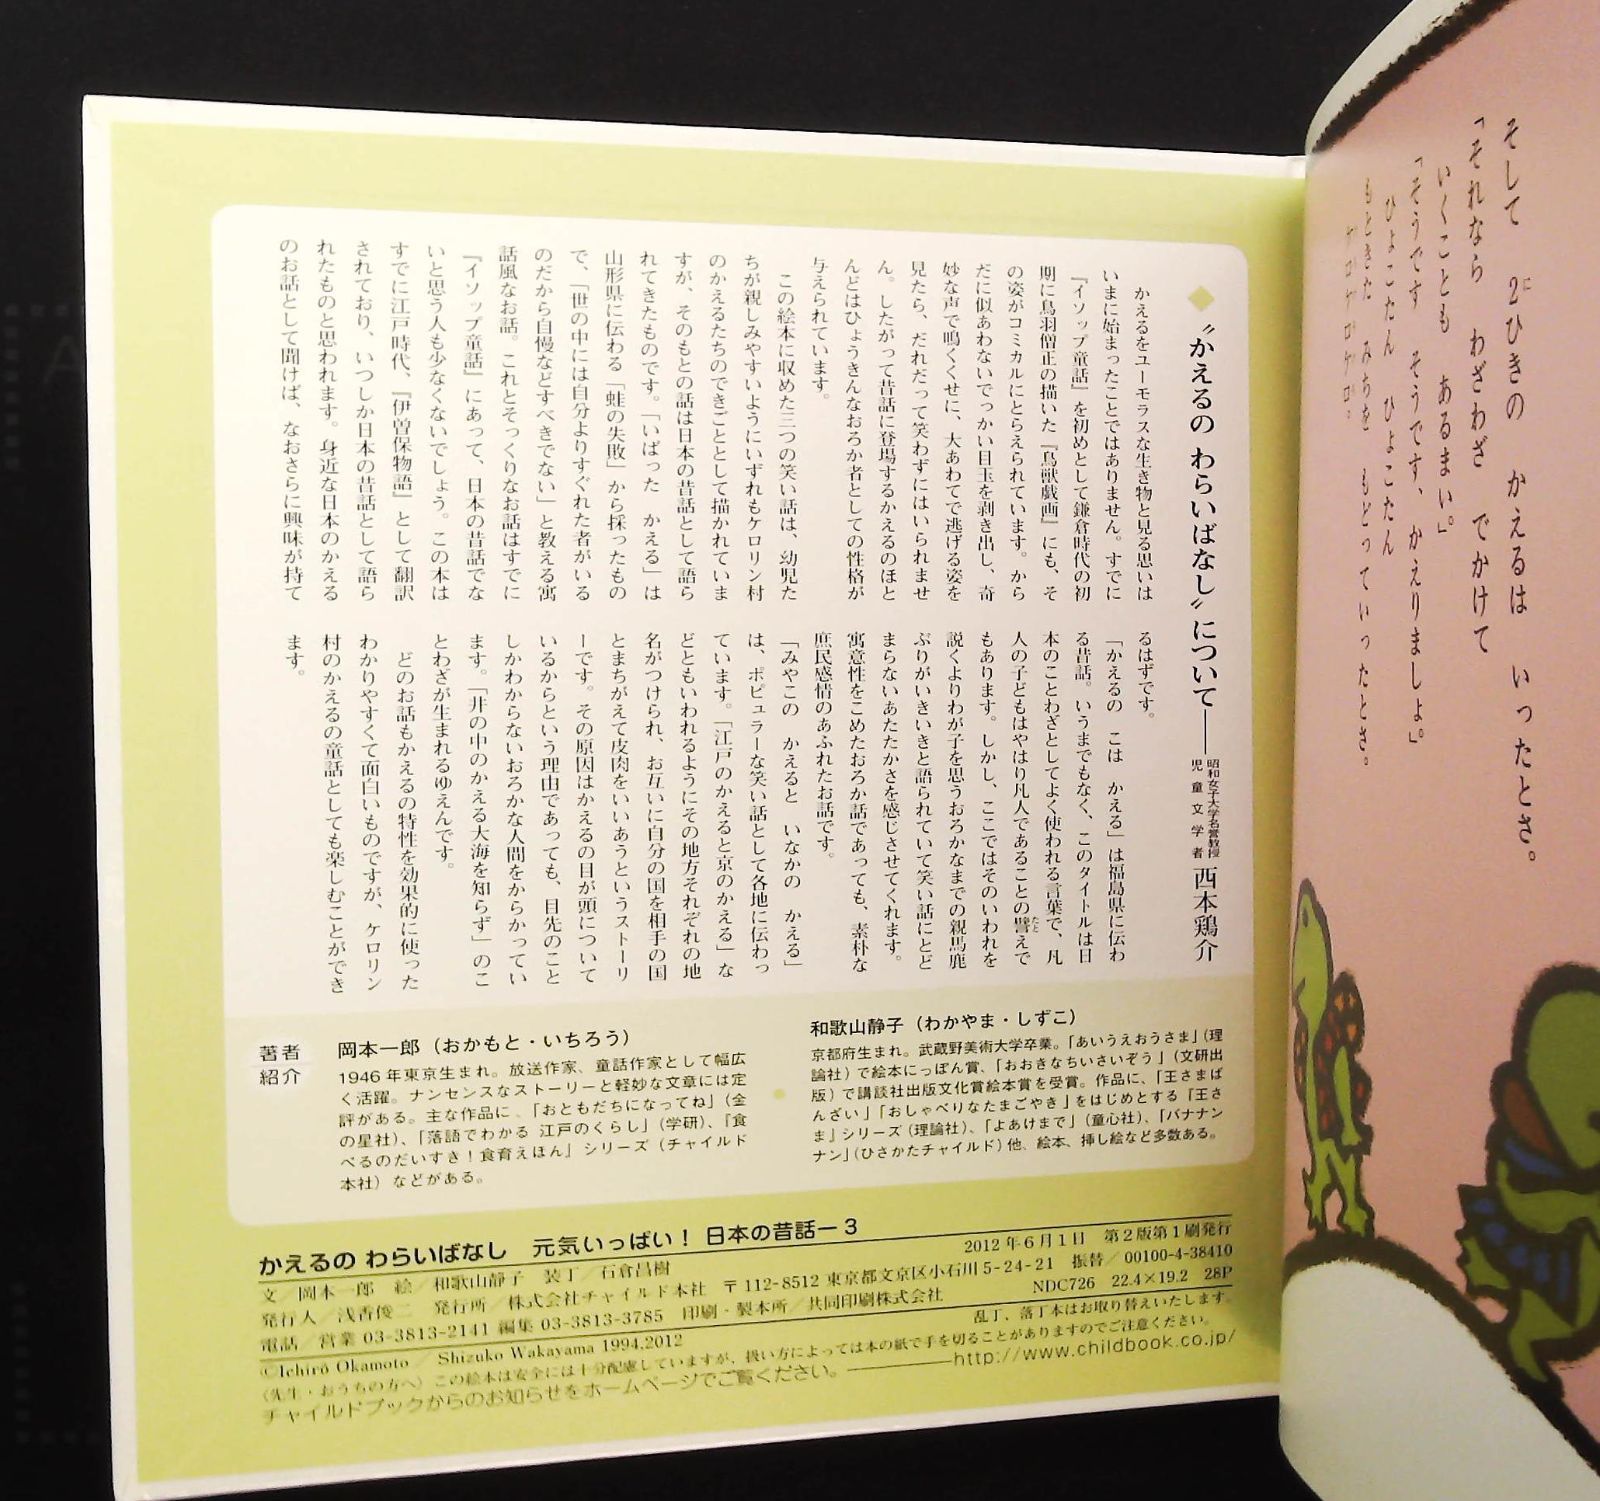 そして　2ひきの　かえるは　いったとさ。
に
「それなら　わざわざ　でかけて
いくことも　あるまい。」
「そうです　そうです、かえりましょ。」
ひょこたん　ひょこたん
もときた　みちを　もどっていったとさ。
ケロケロケロ。
◆〝かえるの わらいばなし〟について――
昭和女子大学名誉教授
児童文学者
西本鶏介
かえるをユーモラスな生き物と見る思いは
いまに始まったことではありません。すでに
『イソップ童話』を初めとして鎌倉時代の初
期に鳥羽僧正の描いた『鳥獣戯画』にも、そ
の姿がコミカルにとらえられています。から
だに似あわないでっかい目玉を剥き出し、奇
妙な声で鳴くくせに、大あわてで逃げる姿を
見たら、だれだって笑わずにはいられませ
ん。したがって昔話に登場するかえるのほと
んどはひょうきんなおろか者としての性格が
与えられています。
この絵本に収めた三つの笑い話は、幼児た
ちが親しみやすいようにいずれもケロリン村
のかえるたちのできごととして描かれていま
すが、そのもとの話は日本の昔話として語ら
れてきたものです。「いばった　かえる」は
山形県に伝わる「蛙の失敗」から採ったもの
で、「世の中には自分よりすぐれた者がいる
のだから自慢などすべきでない」と教える寓
話風なお話。これとそっくりなお話はすでに
『イソップ童話』にあって、日本の昔話でな
いと思う人も少なくないでしょう。この本は
すでに江戸時代、『伊曽保物語』として翻訳
されており、いつしか日本の昔話として語ら
れたものと思われます。身近な日本のかえる
のお話として聞けば、なおさらに興味が持て
るはずです。
「かえるの　こは　かえる」は福島県に伝わ
る昔話。いうまでもなく、このタイトルは日
本のことわざとしてよく使われる言葉で、凡
人の子どもはやはり凡人であることの譬えで
たと
もあります。しかし、ここではそのいわれを
説くよりわが子を思うおろかなまでの親馬鹿
ぶりがいきいきと語られていて笑い話にとど
まらないあたたかさを感じさせてくれます。
寓意性をこめたおろか話であっても、素朴な
庶民感情のあふれたお話です。
「みやこの　かえると　いなかの　かえる」
は、ポピュラーな笑い話として各地に伝わっ
ています。「江戸のかえると京のかえる」な
どともいわれるようにその地方それぞれの地
名がつけられ、お互いに自分の国を相手の国
とまちがえて皮肉をいいあうというストーリ
ーです。その原因はかえるの目が頭について
いるからという理由であっても、目先のこと
しかわからないおろかな人間をからかってい
ます。「井の中のかえる大海を知らず」のこ
とわざが生まれるゆえんです。
どのお話もかえるの特性を効果的に使った
わかりやすくて面白いものですが、ケロリン
村のかえるの童話としても楽しむことができ
ます。
著者
紹介
岡本一郎（おかもと・いちろう）
1946年東京生まれ。放送作家、童話作家として幅広
く活躍。ナンセンスなストーリーと軽妙な文章には定
評がある。主な作品に、「おともだちになってね」（金
の星社）、「落語でわかる 江戸のくらし」（学研）、「食
べるのだいすき！食育えほん」シリーズ（チャイルド
本社）などがある。
和歌山静子（わかやま・しずこ）
京都府生まれ。武蔵野美術大学卒業。「あいうえおうさま」（理
論社）で絵本にっぽん賞、「おおきなちいさいぞう」（文研出
版）で講談社出版文化賞絵本賞を受賞。作品に、「王さまば
んざい」「おしゃべりなたまごやき」をはじめとする「王さ
ま」シリーズ（理論社）、「よあけまで」（童心社）、「バナナン
ナン」（ひさかたチャイルド）他、絵本、挿し絵など多数ある。
かえるの わらいばなし　元気いっぱい！ 日本の昔話ー3
文／岡本一郎　絵／和歌山静子　装丁／石倉昌樹　2012年6月1日　第2版第1刷発行
発行人／浅香俊二　発行所／株式会社チャイルド本社　〒112-8512 東京都文京区小石川5-24-21　振替／00100-4-38410
電話／営業 03-3813-2141 編集 03-3813-3785　印刷・製本所／共同印刷株式会社　NDC726　22.4×19.2　28P
©Ichiro Okamoto／Shizuko Wakayama 1994,2012　乱丁、落丁本はお取り替えいたします。
（先生・おうちの方へ）この絵本は安全には十分配慮していますが、扱い方によっては本の紙で手を切ることがありますのでご注意ください。
チャイルドブックからのお知らせをホームページでご覧ください。――http://www.childbook.co.jp/